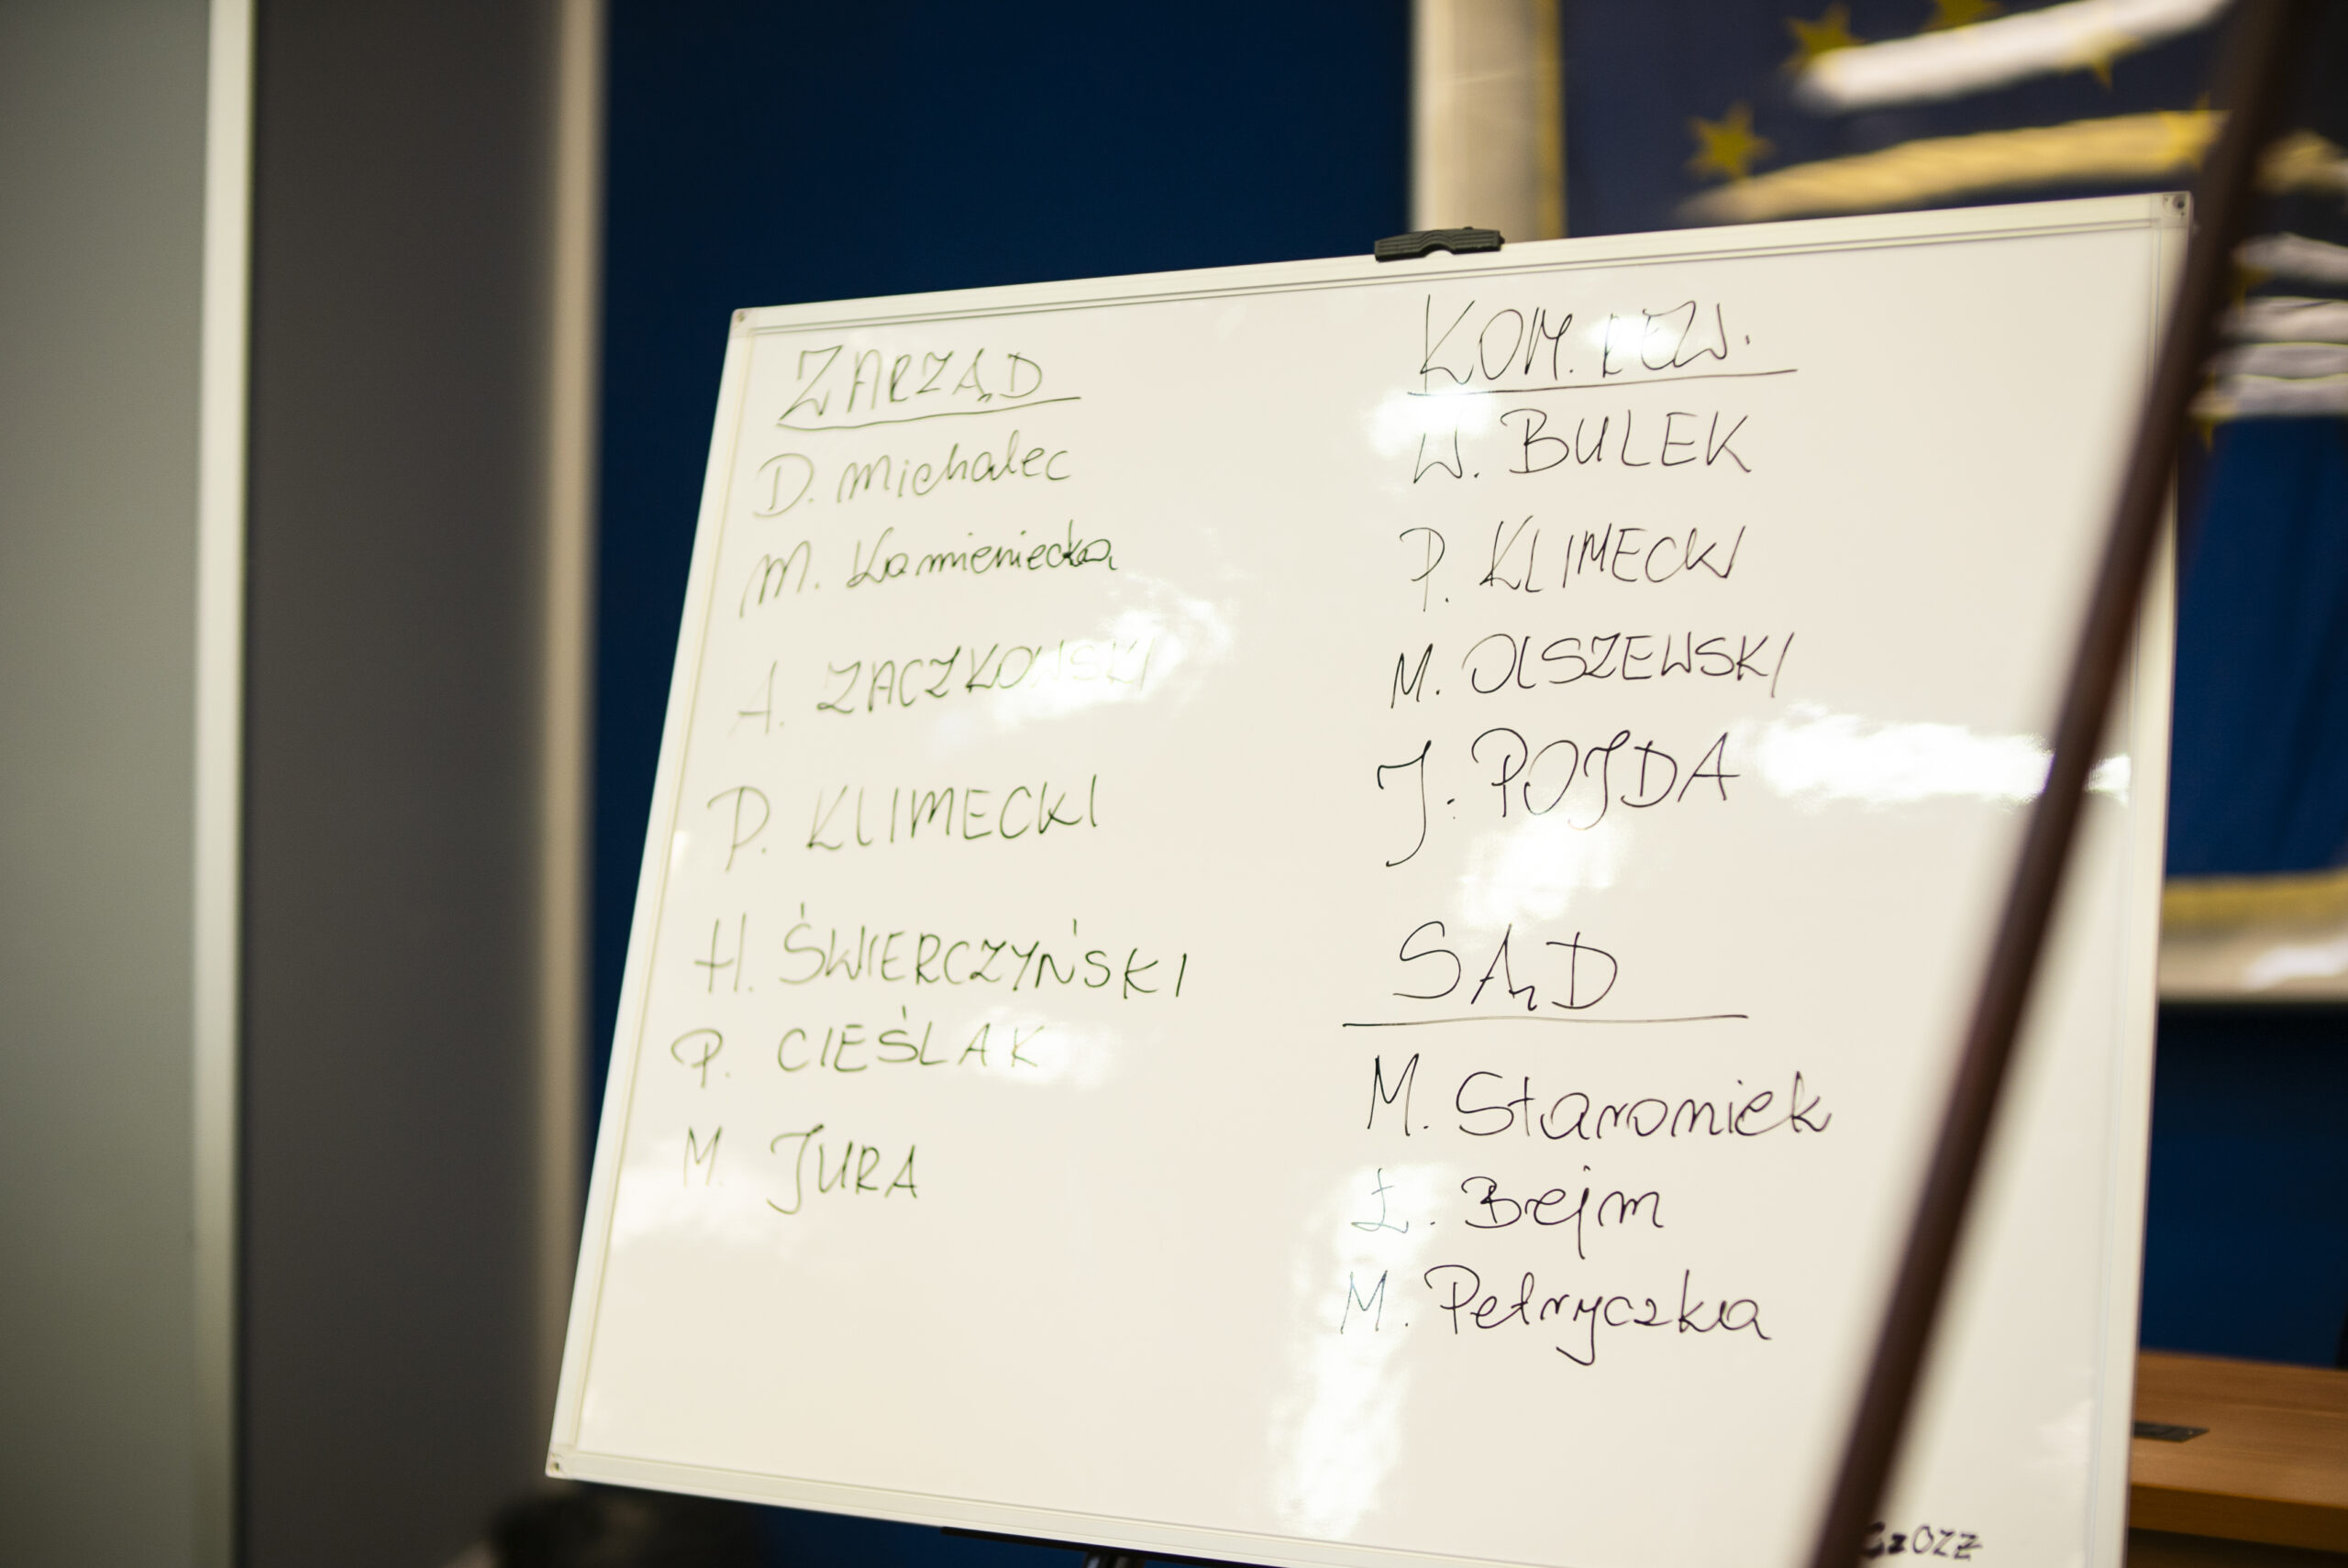 ZARZĄD
D. Michalec
M. Kamieniecka
A. ZACZKOWSKI
P. KLIMECKI
H. ŚWIERCZYŃSKI
P. CIEŚLAK
M. JURA
KOM. REW.
W. BULEK
P. KLIMECKI
M. OLSZEWSKI
J. POJDA
SĄD
M. Staroniek
Ł. Bejm
M. Petryczka